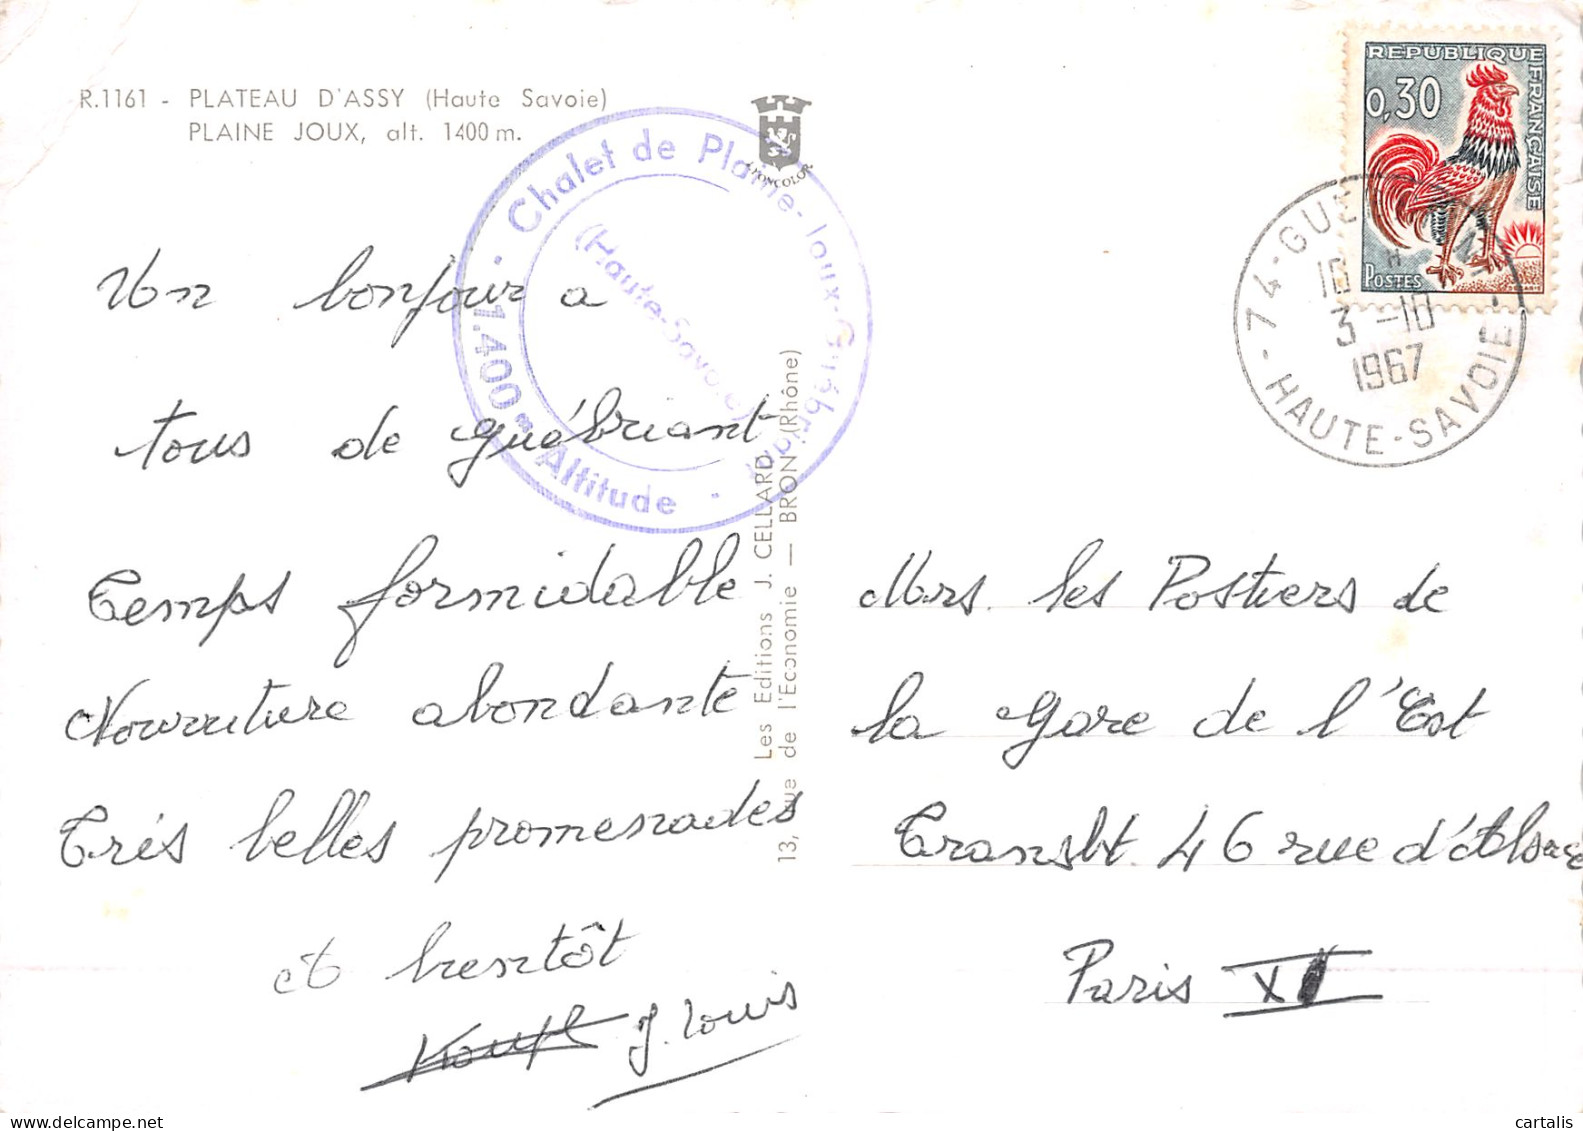 R.1161 - PLATEAU D'ASSY (Haute Savoie)
PLAINE JOUX, alt. 1400 m.
SPONCOLOR
REPUBLIQUE FRANÇAISE
0,30
POSTES
74 - GUE
HAUTE-SAVOIE
10 H
3 -10
1967
· Chalet de Plaine-Joux-Guébriant ·
1.400 m Altitude
(Haute-Savoie)
Un bonjour a
tous de guébriant
Temps formidable
Nourriture abondante
Trés belles promenades
A bientôt
J. Louis
Les Editions J. CELLARD
13, rue de l'Economie — BRON (Rhône)
Mrs. les Postiers de
la Gare de l'Est
Transbt. 46 rue d'Alsace
Paris X
cartalis